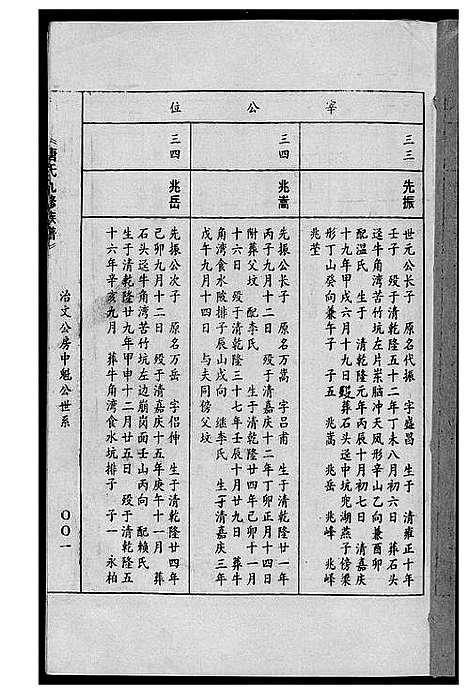 宰公位
三三
先振
世元公长子 原名代振 字盛昌 生于 清雍正十年
壬子 殁于清乾隆五十二年丁未八月初六日 葬石头
迳牛角湾苦竹坑左片岽脑冲天凤形辛山乙向兼酉卯
配温氏 生于 清乾隆元年丙辰十月初七日 清嘉庆
十九年甲戌六月十九日殁葬石头迳中坑兜湖燕子傍梁
形丁山癸向兼午子 子五 兆嵩 兆岳 兆峰 兆峰
兆莹
三四
兆嵩
先振公长子 原名万嵩 字吕甫 生于清乾隆廿一年
丙子九月十二日 殁于清嘉庆十二年丁卯正月十四日
附葬父坟 配李氏 生于清乾隆廿四年己卯十一月
十六日 殁于清乾隆三十七年壬辰十月廿九日 葬牛
角湾食水陂排子辰山戌向 继李氏 生于清嘉庆三年
戊午九月十四日 与夫同傍父坟
三四
兆岳
先振公次子 原名万岳 字侣伸 生于清乾隆廿四年
己卯九月十二日 殁于清嘉庆十五年庚午十一月 葬
石头迳牛角湾苦竹坑左边崩岗面壬山丙向 配赖氏
生于清乾隆廿九年甲申十二月廿五日 殁于清乾隆五
十六年辛亥九月 葬牛角湾食水坑排子 子一 永柏
唐氏九修族谱
治文公房中魁公世系
001